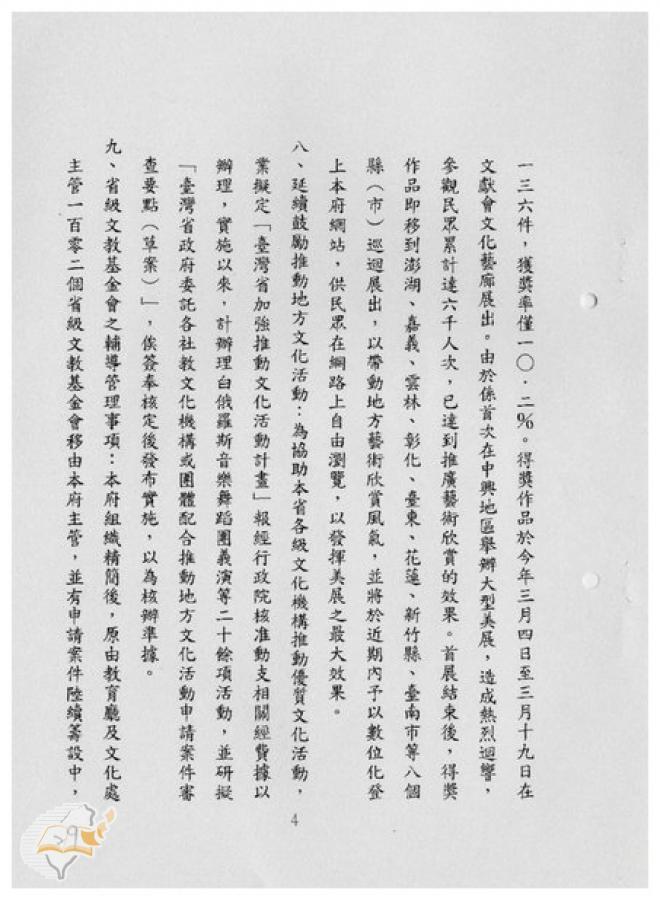 一三六件，獲獎率僅一○．二％。得獎作品於今年三月四日至三月十九日在
文獻會文化藝廊展出。由於係首次在中興地區舉辦大型美展，造成熱烈迴響，
參觀民眾累計達六千人次，已達到推廣藝術欣賞的效果。首展結束後，得獎
作品即移到澎湖、嘉義、雲林、彰化、臺東、花蓮、新竹縣、臺南市等八個
縣（市）巡迴展出，以帶動地方藝術欣賞風氣，並將於近期內予以數位化登
上本府網站，供民眾在網路上自由瀏覽，以發揮美展之最大效果。
八、延續鼓勵推動地方文化活動：為協助本省各級文化機構推動優質文化活動，
業擬定「臺灣省加強推動文化活動計畫」報經行政院核准動支相關經費據以
辦理，實施以來，計辦理白俄羅斯音樂舞蹈團義演等二十餘項活動，並研擬
「臺灣省政府委託各社教文化機構或團體配合推動地方文化活動申請案件審
查要點（草案）」，俟簽奉核定後發布實施，以為核辦準據。
九、省級文教基金會之輔導管理事項：本府組織精簡後，原由教育廳及文化處
主管一百零二個省級文教基金會移由本府主管，並有申請案件陸續籌設中，
4